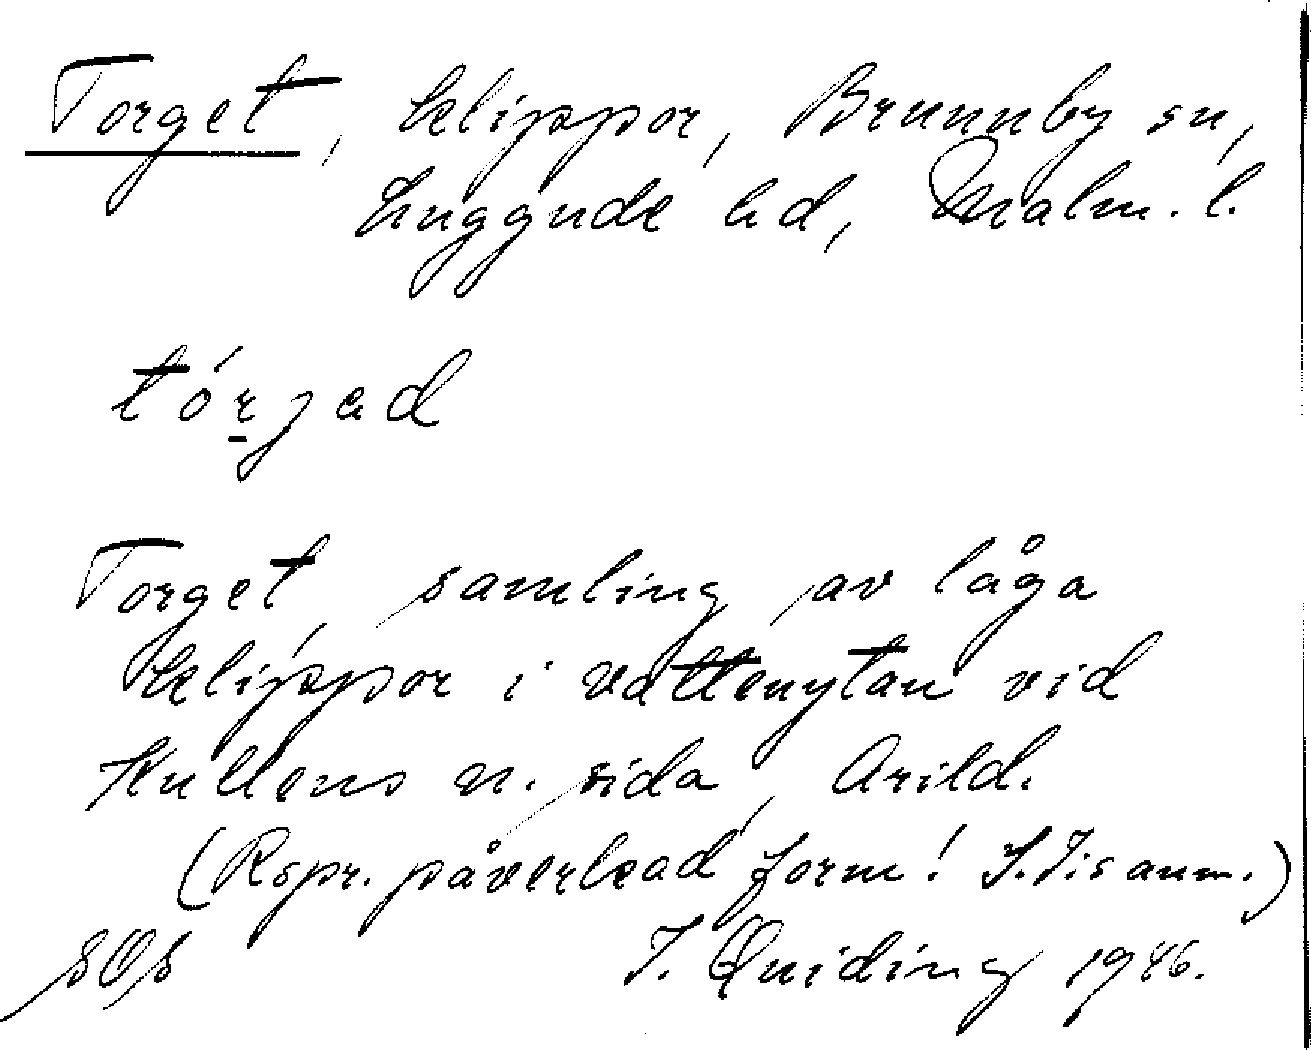 Torget, klippor, Brunnby sn,
Luggude hd, Malm. l.
tórjad
Torget, samling av låga
klippor i vattenytan vid
Kullens n. sida, Arild.
(Rspr. påverkad form! I.I:s anm.)
I. Quiding 1946.